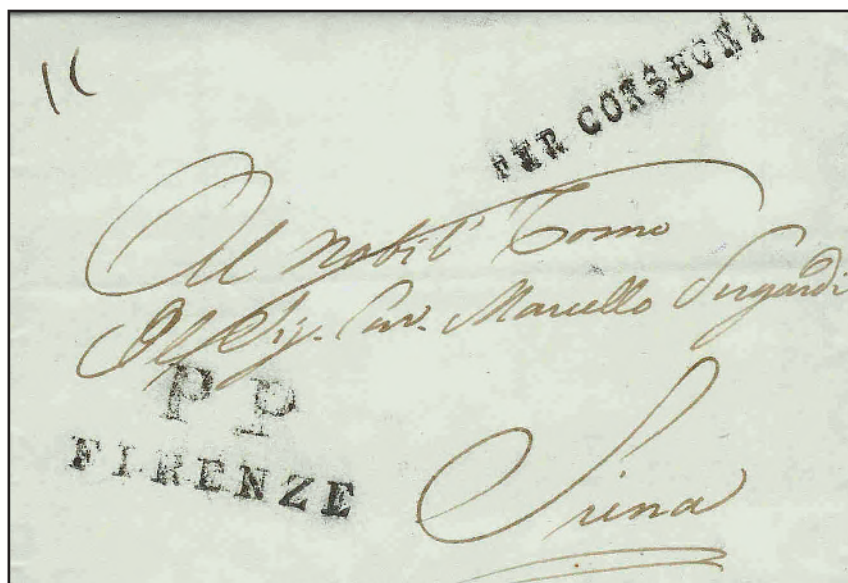 PER CONSEGNA
Al nobil' Uomo
Ill Sig. Cav. Marcello Sergardi
P P
FIRENZE
Siena